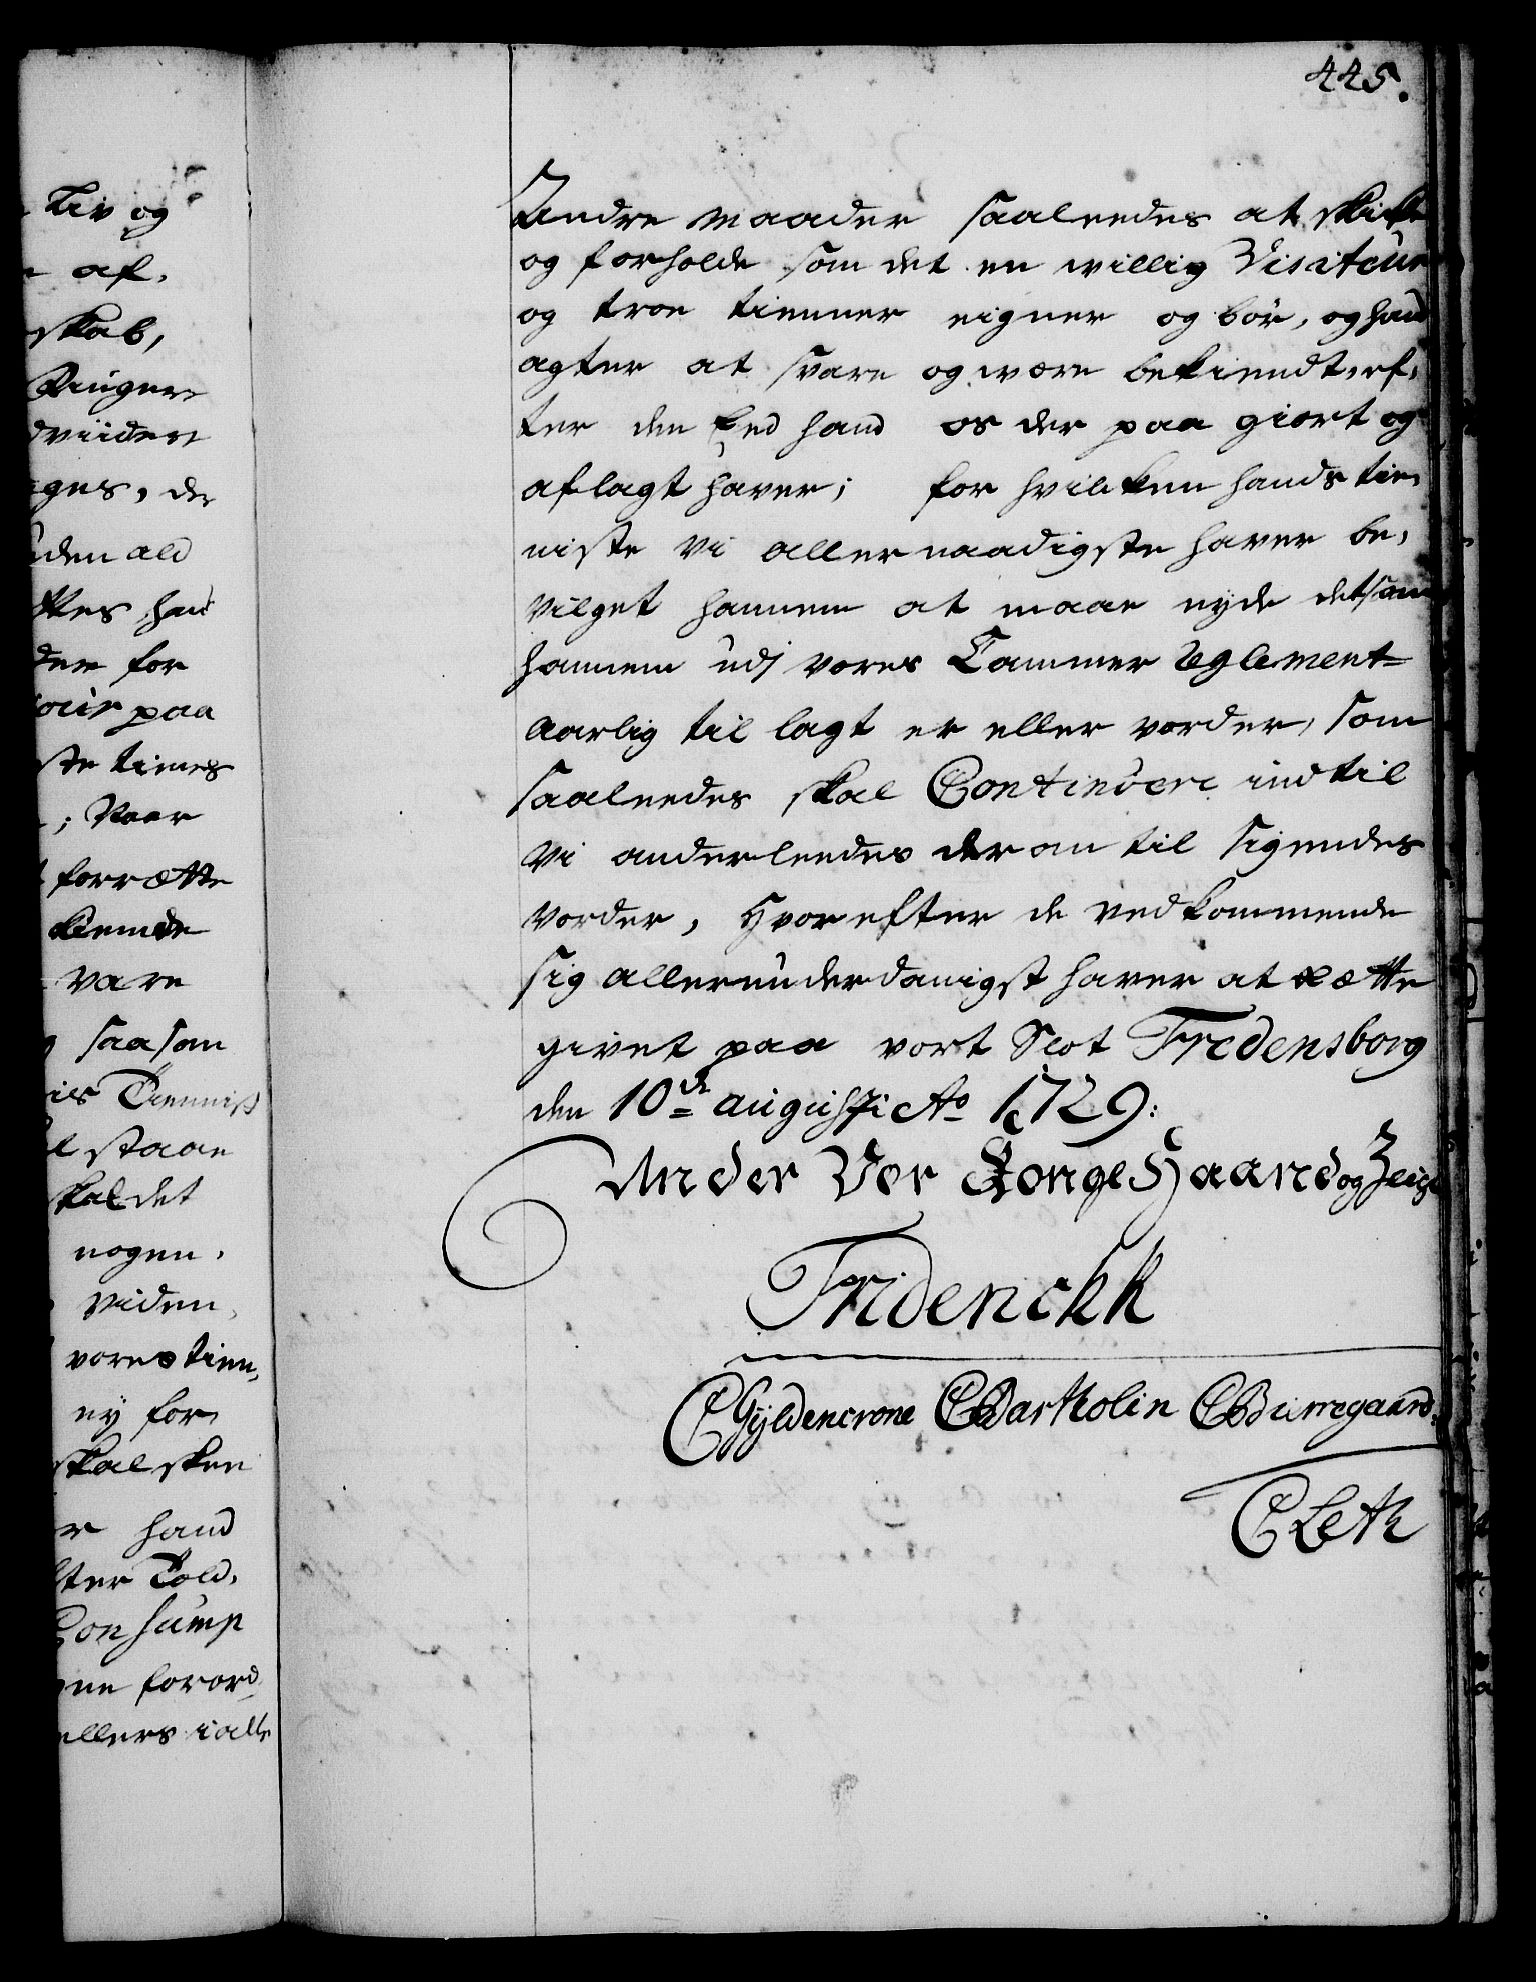 445.
Andre maader saaleedes at skicke
og forholde som det en willig Visiteur
og troe tienner eigner og bör, og hand
agter at svare og være bekiendt, ef,
ter den Eed hand os der paa giort og
aflagt haver; for hvilcken hands tie,
niste Vi allernaadigste haver be,
vilget hannem at maae nyde det som
hannem udj vores Cammer Reglement
aarlig til lagt er eller vorder, som
saaleedes skal Continuere indtil
Vi anderleedes derom til sigendes
vorder, Hvorefter de vedkommende
sig allerunderdanigst haver at rætte
givet paa vort Slot Fredensborg
den 10de augusti Ao 1729:
Under Vor Konge Haand og Zeigl
Friderich R
C Gyldencrone C Bartholin C Burregaard:
C Leth
Liv og
af,
skab,
Ringere
dviidere
ges, de
uden ald
ttes hand
der for
paa
ste times
; Naar
forrætte
kiende
vare
saasom
staae
skal det
nogen,
viden,
vores tien,
ny for,
skal skee
r hand
ter Told,
Consump
ne forord,
ellers i alle